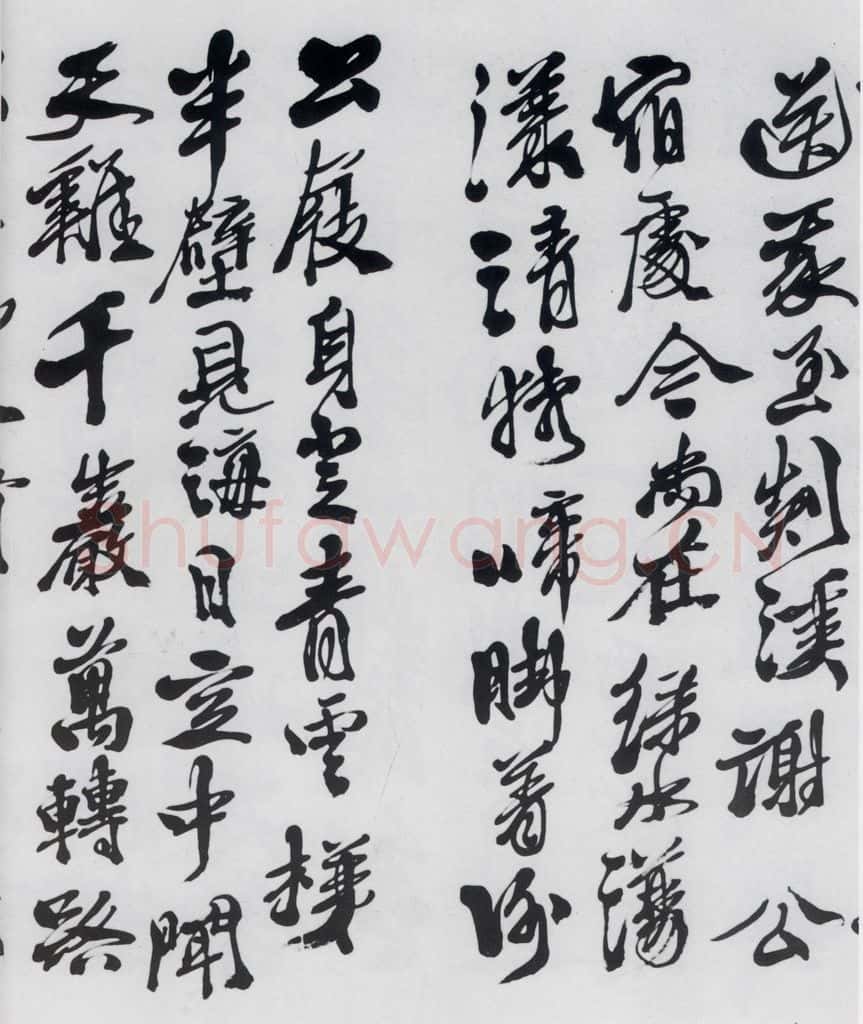 送我至剡溪謝公
宿處今尚在綠水蕩
漾清猿啼脚着謝
公屐身登青雲梯
半壁見海日空中聞
天雞千巖萬轉路
Shufawang.CN